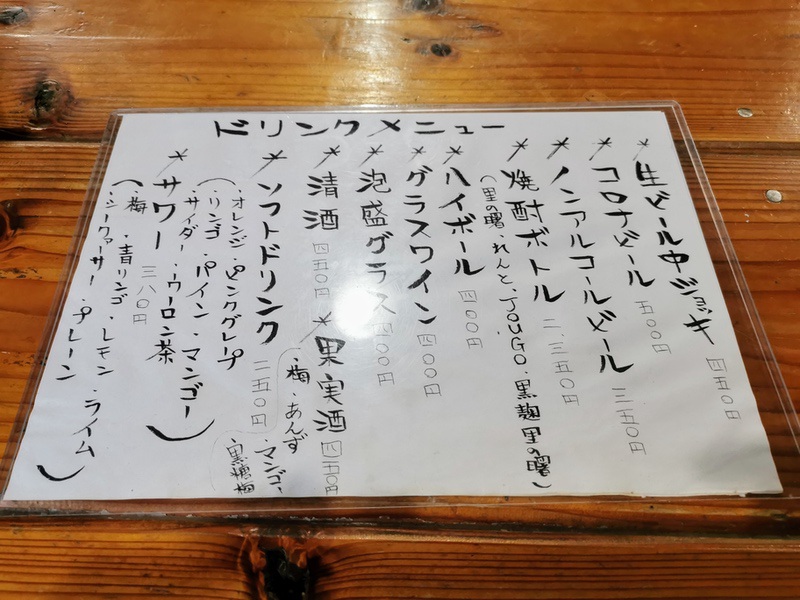 ドリンクメニュー
*生ビール中ジョッキ 四五〇円
*コロナビール 五〇〇円
*ノンアルコールビール 三五〇円
*焼酎ボトル 二.三五〇円
(里の曙・れんと・JOUGO・黒麹里の曙)
*ハイボール 四〇〇円
*グラスワイン 四〇〇円
*泡盛グラス 四〇〇円
*清酒 四五〇円
*果実酒 四五〇円
・梅・あんず
・マンゴー
・黒糖梅
*ソフトドリンク 二五〇円
(・オレンジ・ピンクグレープ
・リンゴ・パイン・マンゴー
・サイダー・ウーロン茶)
*サワー 三八〇円
(・梅・青リンゴ・レモン・ライム
・シークァーサー・プレーン)